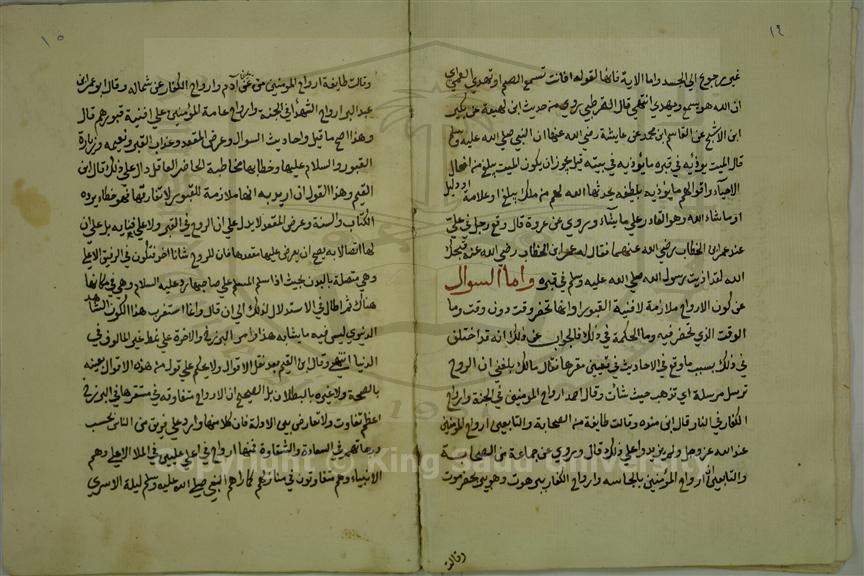 ١٤
غير مرجوح الى الجسد واما الاية فانها لقوله افانت تسمع الصم او تهدي العمي
ان الله هو يسمع ويهدي انتهى قال القرطبي روي من حديث ابن لهيعة عن بكير
ابن الاشج عن القاسم ابن محمد عن عايشة رضي الله عنها ان النبي صلى الله عليه وسلم
قال الميت يوذيه في قبره ما يوذيه في بيته قيل يجوز ان يكون الميت يبلغ من افعال
الاحياء واقوالهم ما يوذيه بلطيفة يحدثها الله لهم من ملك يبلغ او علامة او دليل
او ما شاء الله وهو القادر على ما يشاء وروي عن عروة قال وقع رجل في علي
عند عمر ابن الخطاب رضي الله عنهما فقال له عمر ابن الخطاب رضي الله عنه قبحك
الله لقد اذيت رسول الله صلى الله عليه وسلم في قبره واما السوال
عن كون الارواح ملازمة لافنية القبور او انها تحضر وقت دون وقت وما
الوقت الذي تحضر فيه وما الحكمة في ذلك فالجواب عن ذلك انه قد اختلف
في ذلك بسبب ما وقع في الاحاديث في تعيين مقرها فقال مالك بلغني ان الروح
ترسل مرسلة اي تذهب حيث شات وقال احمد ارواح المومنين في الجنة وارواح
الكفار في النار قال ابن منده وقالت طايفة من الصحابة والتابعين ارواح المومنين
عند الله عز وجل ولم يزيدوا على ذلك قال وروي عن جماعة من الصحابة
والتابعين ان ارواح المؤمنين بالجابيه وارواح الكفار ببرهوت وهو بير بحضرموت
وقالت
١٥
وقالت طايفة ارواح المومنين عن يمين آدم وارواح الكفار عن شماله وقال ابو عمر ابن
عبد البر ارواح الشهدا في الجنة وارواح عامة المؤمنين على افنية قبورهم قال
وهذا اصح ما قيل واحاديث السوال وعرض المقعد وعذاب القبر ونعيمه وزيارة
القبور والسلام عليها وخطابها مخاطبة الحاضر العاقل دال على ذلك قال ابن
القيم وهذا القول ان اريد به انها ملازمة للقبور لا تفارقها فهو خطاء يرده
الكتاب والسنة وعرض المقعد لا يدل على ان الروح في القبر ولا على فنايه بل على ان
لها اتصالا به يصح ان يعرض عليها مقعدها فان للروح شانا اخر فتكون في الرفيق الاعلى
وهي متصلة بالبدن بحيث اذا سلم المسلم على صاحبها رد عليه السلام وهي في مكانها
هناك ثم اطال في الاستدلال لذلك الى ان قال وانما استغرب هذا الكون الشاهد
الدنيوي ليس فيه ما يشابه هذا وامور البرزخ والاخرة على نمط غير المالوف في
الدنيا انتهى وقال ابن القيم بعد نقل الاقوال ولا يحكم على قول من هذه الاقوال بعينه
بالصحة ولا غيره بالبطلان بل الصحيح ان الارواح متفاوته في مستقرها في البرزخ
اعظم تفاوت ولا تعارض بين الادلة فان كلا منها وارد على فريق من الناس بحسب
درجاتهم في السعادة والشقاوة فمنها ارواح في اعلى عليين في الملا الاعلى وهم
الانبياء وهم متفاوتون في منازلهم كما راهم النبي صلى الله عليه وسلم ليلة الاسرى
Copyright © King Saud University